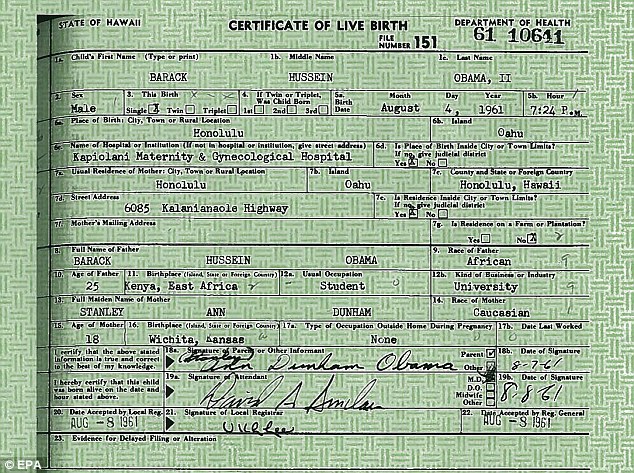 STATE OF HAWAII CERTIFICATE OF LIVE BIRTH DEPARTMENT OF HEALTH
FILE NUMBER 151 61 10641
1a. Child's First Name (Type or print) 1b. Middle Name 1c. Last Name
BARACK HUSSEIN OBAMA, II
2. Sex 3. This Birth 4. If Twin or Triplet, Was Child Born 5a. Birth Date Month Day Year 5b. Hour
Male Single X Twin Triplet 1st 2nd 3rd August 4, 1961 7:24 P.M.
6a. Place of Birth: City, Town or Rural Location 6b. Island
Honolulu Oahu
6c. Name of Hospital or Institution (If not in hospital or institution, give street address) 6d. Is Place of Birth Inside City or Town Limits? If no, give judicial district
Kapiolani Maternity & Gynecological Hospital Yes X No
7a. Usual Residence of Mother: City, Town or Rural Location 7b. Island 7c. County and State or Foreign Country
Honolulu Oahu Honolulu, Hawaii
7d. Street Address 7e. Is Residence Inside City or Town Limits? If no, give judicial district
6085 Kalanianaole Highway Yes X No
7f. Mother's Mailing Address 7g. Is Residence on a Farm or Plantation?
Yes No X
8. Full Name of Father 9. Race of Father
BARACK HUSSEIN OBAMA African 9
10. Age of Father 11. Birthplace (Island, State or Foreign Country) 12a. Usual Occupation 12b. Kind of Business or Industry
25 Kenya, East Africa Student University 9
13. Full Maiden Name of Mother 14. Race of Mother
STANLEY ANN DUNHAM Caucasian
15. Age of Mother 16. Birthplace (Island, State or Foreign Country) 17a. Type of Occupation Outside Home During Pregnancy 17b. Date Last Worked
18 Wichita, Kansas None
I certify that the above stated information is true and correct to the best of my knowledge. 18a. Signature of Parent or Other Informant Parent Other 18b. Date of Signature
Ann Dunham Obama 8-7-61
I hereby certify that this child was born alive on the date and hour stated above. 19a. Signature of Attendant M.D. D.O. Midwife Other 19b. Date of Signature
David A Sinclair 8-8-61
20. Date Accepted by Local Reg. 21. Signature of Local Registrar 22. Date Accepted by Reg. General
AUG -8 1961 U K L Lee AUG -8 1961
23. Evidence for Delayed Filing or Alteration
© EPA